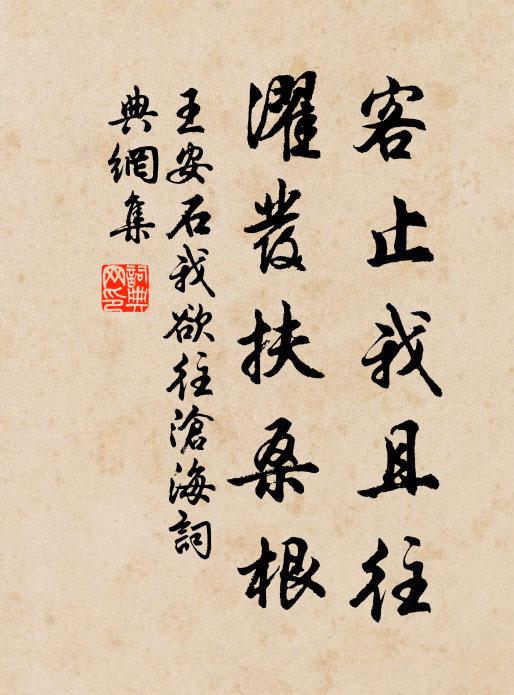 客止我且往
濯發扶桑根
王安石我欲往滄海詞
典網集
詞典
网印